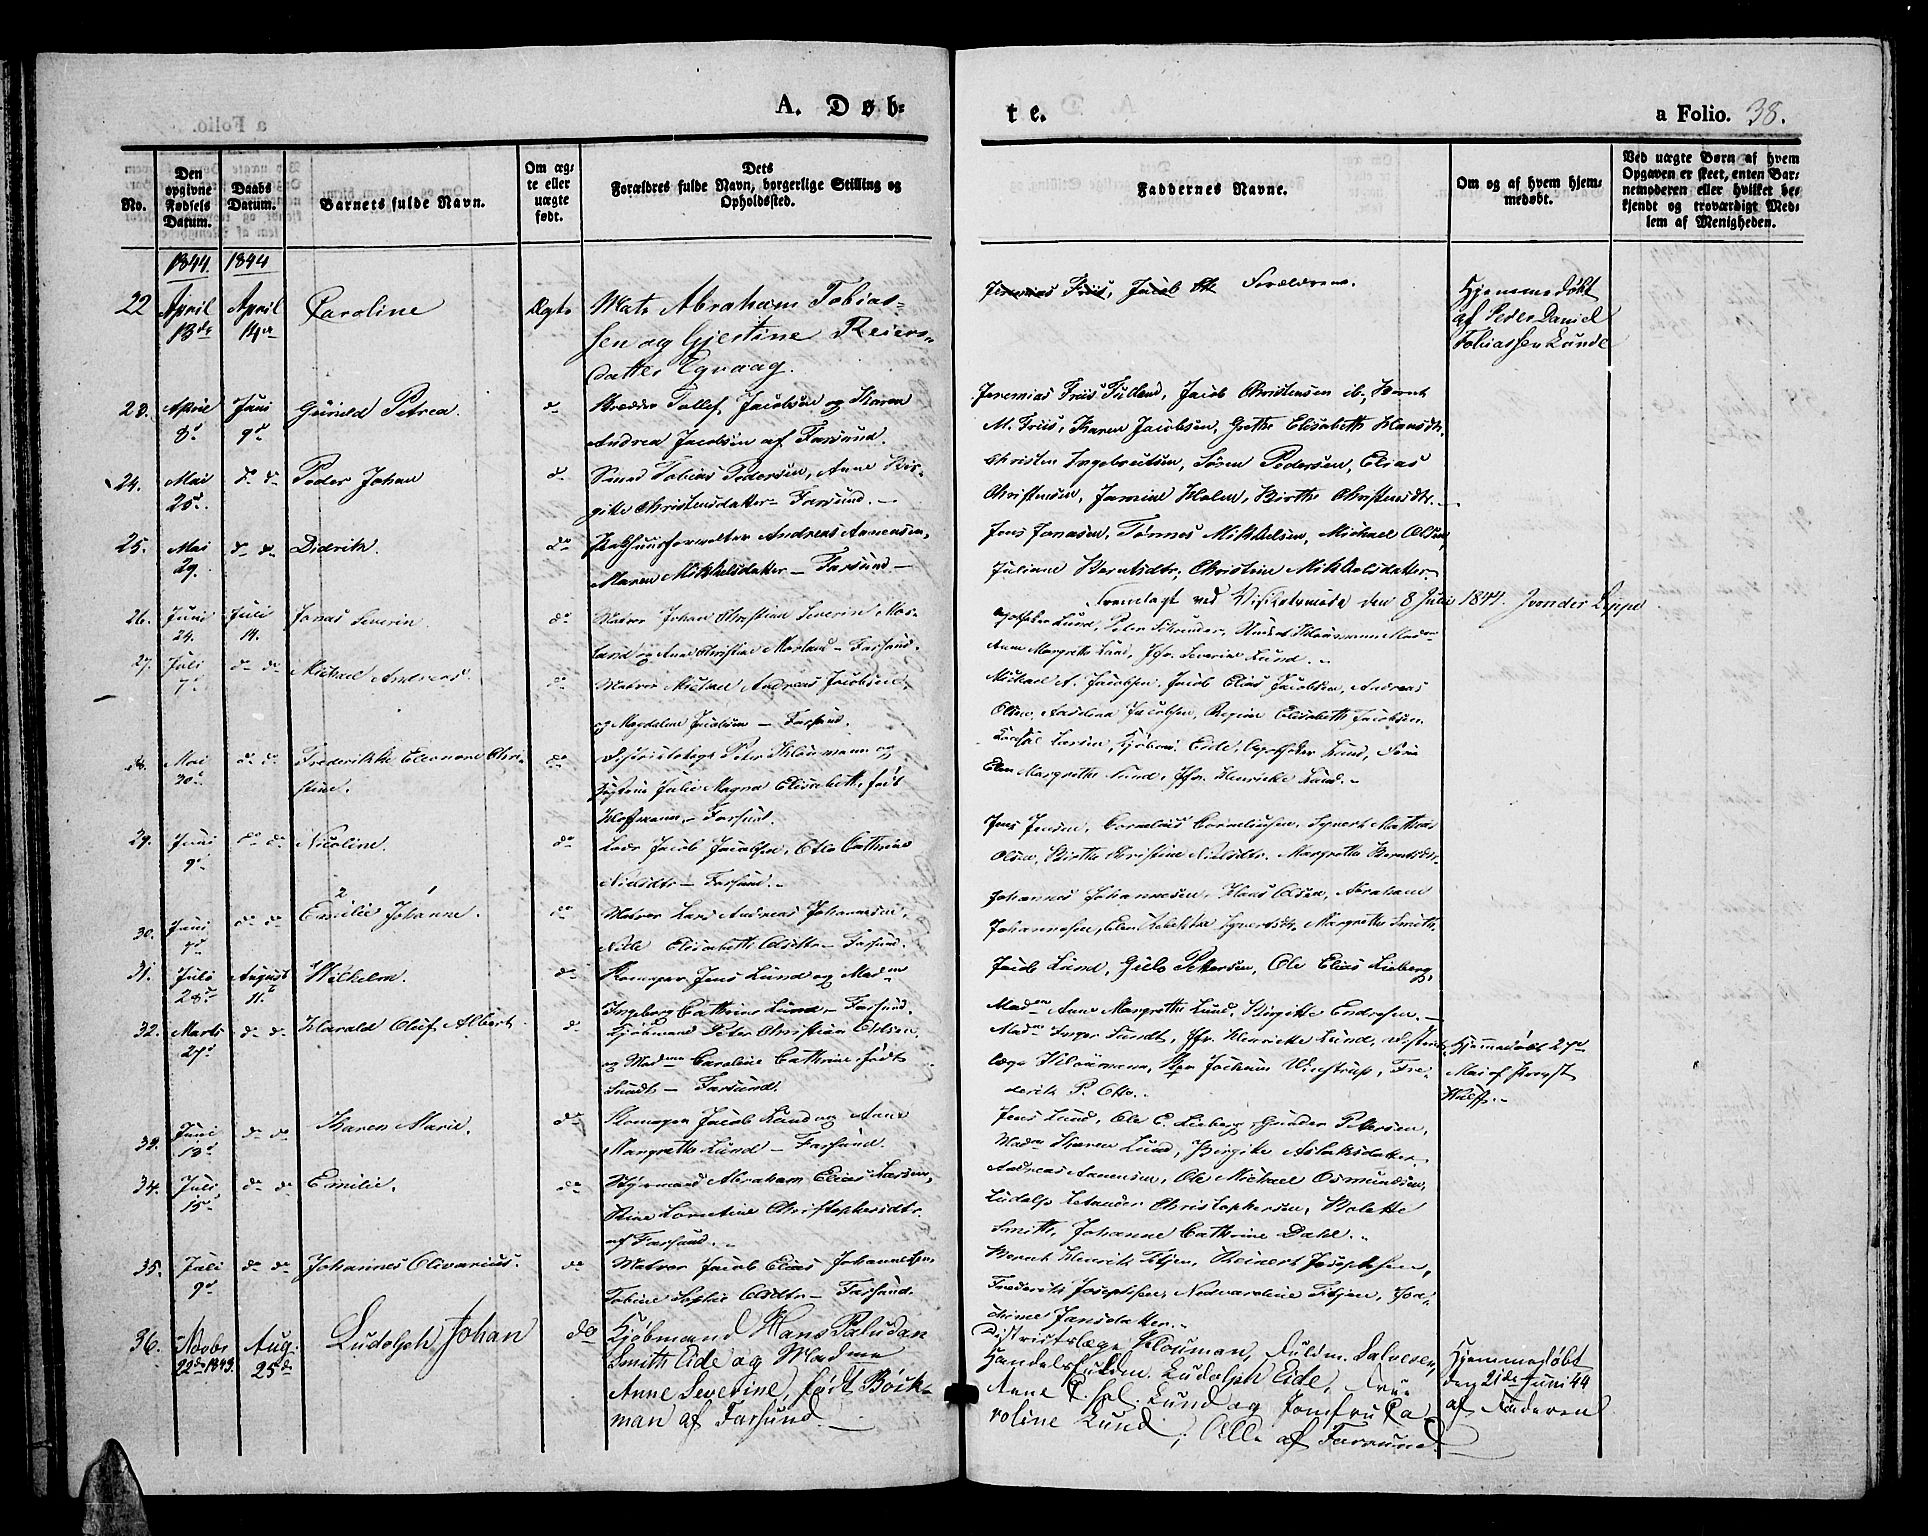 A. Døb-
te.
a Folio. 38.
No.
Den opgivne Fødsels Datum.
Daabs Datum.
Barnets fulde Navn.
Om ægte eller uægte født.
Dets Forældres fulde Navn, borgerlige Stilling og Opholdssted.
Faddernes Navne.
Om og af hvem hjemmedøbt.
Ved uægte Børn af hvem Opgaven er skeet, enten Barnemoderen eller hvilket bekjendt og troværdigt Medlem af Menigheden.
1844. 1844
22 April 13de April 14de Caroline Ægte Matr. Abraham Tobias-
sen og Gjertine Reiers-
datter Egvaag.
Jeremias Friis, Jacob Forældrene.
Hjemmedøbt
af Peder Daniel
Tobiassen Lunde
23. April 8d Juni 9d Gunild Petrea. do Tollef Jacobsen og Karen
Andrea Jacobsen af Farsund.
Jeremias Friis Jacob Christensen ib., Bernt
M. Friis, Karen Jacobsen, Grethe Elisabeth Hansdtr.
24. Mai 25d. do do Peder Johan do Smed Tobias Pedersen, Anne Bir-
gitte Christensdatter - Farsund. -
Christen Ingebretsen, Søren Pedersen, Elias
Christensen, Jamine Holm, Birthe Christensdtr. -
25. Mai 29. do do Didrik. do Andreas Aanensen,
Maren Mikkelsdatter - Farsund -
Jens Jonasen, Tønnes Mikkelsen, Michael Olsen,
Juliane Berntsdtr, Christine Mikkelsdatter.
Fremlagt ved den 8 Juli 1844.
26. Juni 24. Juli 14. Jonas Severin do Matros Johan Christian Severin Mos-
land og Anne Christine Mosland - Farsund.
Apotheker Lund, Peter Schrøder, Klousmann Mad.
Anne Margrethe Lund, Jfr. Severine Lund. -
27. Juli 7d do do Michael Andreas. do Matros Michael Andreas Jacobsen,
og Magdalene Jacobsen - Farsund.
Michael A. Jacobsen, Jacob Elias Jacobsen, Andreas
Olsen, Jacobsen, Regine Elisabeth Jacobsen.
28. Mai 30d do do Frederikke Eleonore Chri-
stine. do Districtslæge Peter Klousmann og
Julie Magna Elisabeth, født
Hoffmann, Farsund.
Larsen, Eide, Apotheker Lund,
Margrethe Lund, Jfr. Henrikke Lund. -
29. Juni 9d do do Nicoline. do Lods Jacob Jacobsen, Cathrine
Nielsdtr - Farsund. -
Jens Jensen, Cornelius Corneliussen, Syvert Mathias
Olsen, Birthe Christine Nielsdtr. Margrethe Berntsdtr.
30. Juni 7d do do Emilie Johanne. do Matros Lars Andreas Johannesen,
Elisabeth Olsdtr - Farsund.
Johannes Johannesen, Hans Olsen, Abraham
Johannesen, Elen Syvertsdtr, Margrethe Smith.
31. Juli 28d August 11te Wilhelm. do Skomager Jens Lund og Madme
Ingeborg Cathrine Lund - Farsund.
Jacob Lund, Petersen, Ole Elias Lieberg,
Madme Anne Margrethe Lund, Birgitte Endresen. -
32. Marts 27d do do Harald Oluf Albert do Kjøbmand Peter Christian Olsen
og Madme Caroline Cathrine født
Sundt - Farsund.
Madme Inger Sundt, Jfr. Henrikke Lund, Districts-
læge Klousmann, Jochum Winstrup, Fre-
derik P. Otto. -
Hjemmedøbt 27d
Mai af Provst
Wulff. -
33. Juni 13d do do Karen Marie. do Skomager Jacob Lund og Anne
Margrethe Lund - Farsund.
Jens Lund, Ole E. Lieberg, Gunder Petersen,
Madme Karen Lund, Birgitte Aslaksdatter.
34. Juli 15d do do Emilie. do Styrmand Abraham Elias Larsen,
Stine Lorentine Christophersdtr.
af Farsund. -
Andreas Aanensen, Ole Michael Osmundsen,
Ludolf Letander Christophersen, Bolette
Smith, Johanne Cathrine Dahl. -
35. Juli 9d do do Johannes Olivarius. do Matros Jacob Elias Johannesen,
Tobine Sophie Olsdtr - Farsund.
Bernt Henrik Reinert Josephsen,
Frederik Josephsen, Nedvardine
Jansdatter. -
36. Novbr 22de 1843. Aug. 25de Ludolph Johan do Kjøbmand Hans Paludan
Smith Eide og Madme
Anne Severine, født Bøck-
man af Farsund. -
Districtslæge Klouman, Fuldm. Salvesen,
Handelsfuldm. Ludolph Eide, Frue
Anne C. Lund og Jomfru Ca-
roline Lund; Alle af Farsund.
Hjemmedøbt
den 21de Juni 44
af Faderen